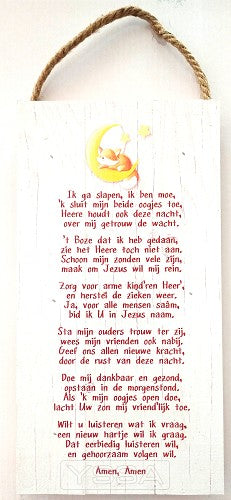 Ik ga slapen, ik ben moe,
'k sluit mijn beide oogjes toe,
Heere houdt ook deze nacht,
over mij getrouw de wacht.
't Boze dat ik heb gedaan,
zie het Heere toch niet aan.
Schoon mijn zonden vele zijn,
maak om Jezus wil mij rein.
Zorg voor arme kind'ren Heer',
en herstel de zieken weer.
Ja, voor alle mensen saâm,
bid ik U in Jezus naam.
Sta mijn ouders trouw ter zij,
wees mijn vrienden ook nabij.
Geef ons allen nieuwe kracht,
door de rust van deze nacht.
Doe mij dankbaar en gezond,
opstaan in de morgenstond.
Als 'k mijn oogjes open doe,
lacht Uw zon mij vriend'lijk toe.
Wilt u luisteren wat ik vraag,
een nieuw hartje wil ik graag.
Dat eerbiedig luisteren wil,
en gehoorzaam volgen wil.
Amen, Amen